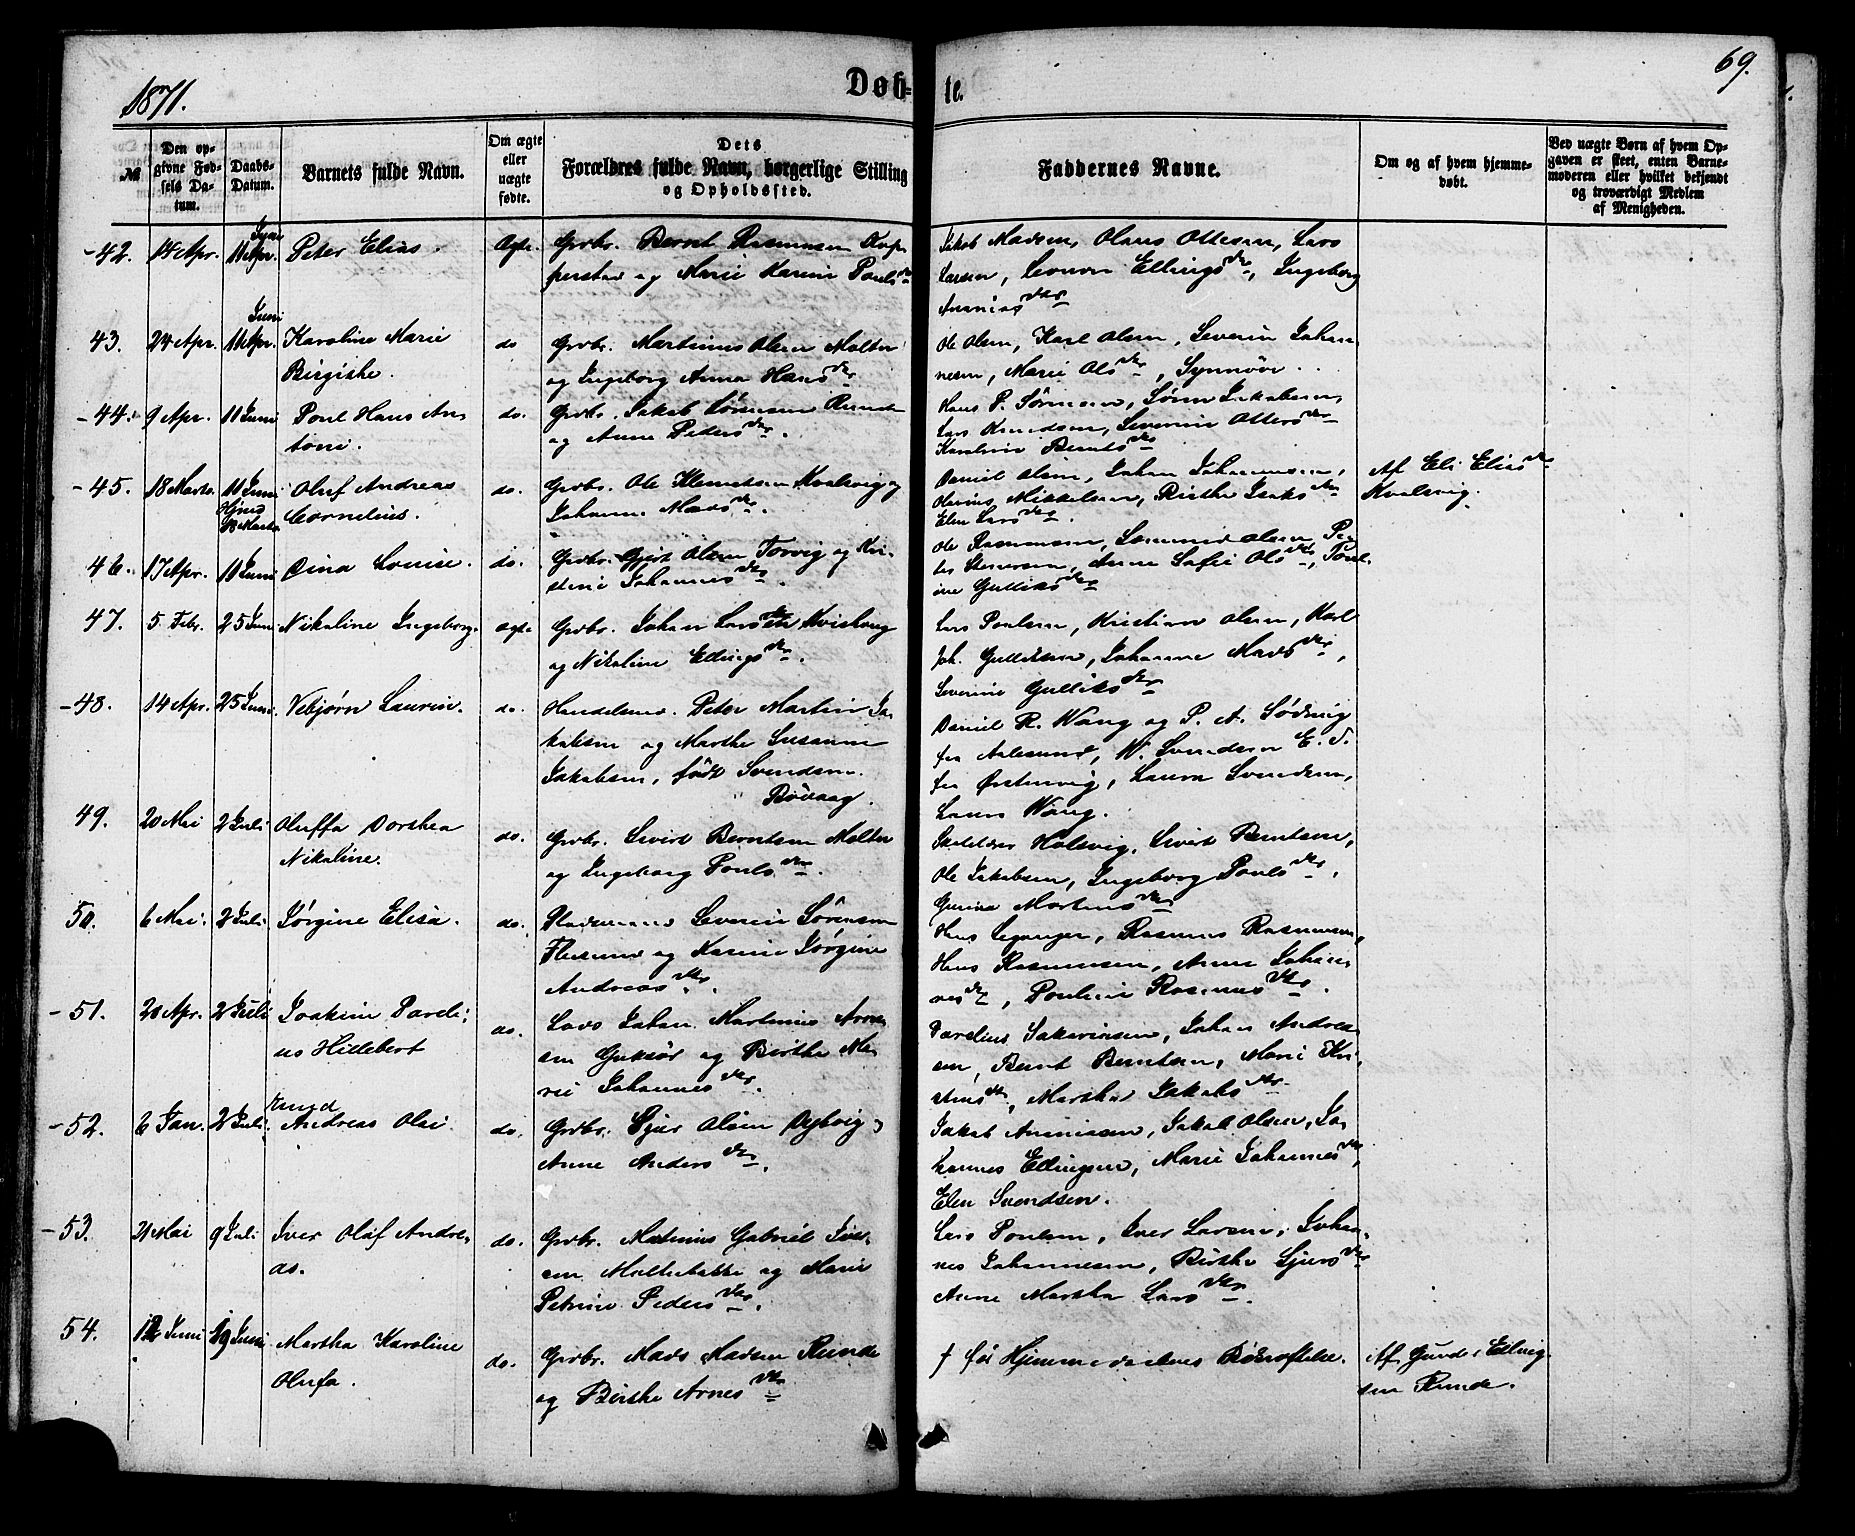 1871.
Døb-
te.
69.
№
Den op-
givne Fød-
sels Da-
tum.
Daabs-
Datum.
Barnets fulde Navn.
Om ægte
eller
uægte
fødte.
Dets
Forældres fulde Navn, borgerlige Stilling
og Opholdssted.
Faddernes Navne.
Om og af hvem hjemme-
døbt.
Ved uægte Børn af hvem Op-
gaven er skeet, enten Barne-
moderen eller hvilket bekjendt
og troværdigt Medlem
af Menigheden.
-42. 14 Apr. 11 Juni Peter Elias. Ægte. Grdbr. Bernt Rasmussen Kop-
perstad og Marie Karine Pouls dtr
Jakob Madsen, Olaus Ottesen, Lars
Larsen, Leonore Ellings dtr, Ingeborg
Ananias dtr
43. 24 Apr. 11 Juni Karoline Marie
Birgithe.
do Grdbr. Martinus Olsen Molter
og Ingeborg Anna Hans dtr
Ole Olsen, Karl Olsen, Severin Johan-
nesen, Marie Ols dtr, Synnøve
-44. 9 Apr. 11 Juni Poul Hans An-
toni.
do. Grdbr. Jakob Sørensen Runde
og Anne Peders dtr.
Hans P. Sørensen, Søren Jakobsen,
Lars Knudsen, Severine Otters dtr
Karoline Bernts dtr
-45. 18 Marts. 11 Juni
Hjmd
18 Marts
Oluf Andreas
Cornelius.
do. Grdbr. Ole Klemetsen Kvalsvig og
Johanne Mads dtr.
Daniel Olsen, Johan Johannessen,
Olerius Mikkelsen, Birthe Isaks dtr
Elen Lars dtr.
Af Eli Elias dtr
Kvalsvig.
46. 17 Apr. 11 Juni Oina Louise. do. Grdbr. Gjert Olsen Torvig og Kri-
stine Johannes dtr.
Ole Rasmussen, Olsen, Pe-
ter Stenersen, Anne Sofie Ols dtr, Poul-
ine Gulliks dtr
47. 5. Febr. 25 Juni Nikoline Ingeborg. Ægte Grdbr. Johan Larsen Kvishaug
og Nikoline Ellings dtr.
Lars Poulsen, Kristian Olsen, Karl
Joh. Gulliksen, Johanne Mads dtr,
Severine Gulliks dtr
-48. 14 Apr. 25 Juni Vebjørn Laurin. do. Handelsmd. Peter Martin Ja-
kobsen og Marthe Susanne
Jakobsen, født Svendsen.
Rødvaag.
Daniel R. Wang og P. A. Sødring
fra Aalesund, W. Svendsen E. S.
fra Ørstenvig, Laura Svendsen,
Laura Wang.
49. 20 Mai 2 Juli Oluffa Dorthea
Nikoline.
do. Grdbr. Sivert Berntsen Molter
og Ingeborg Pouls dtr.
Skolelærer Holsvig, Sivert Berntsen,
Ole Jakobsen, Ingeborg Pouls dtr,
Gurina Martins dtr
50. 6 Mai. 2 Juli. Jørgine Elisa. do. Pladsmand Severin Sørensen
og Karine Jørgine
Andreas dtr.
Hans Leganger, Rasmus Rasmussen,
Hans Rasmussen, Anne Johan-
nes dtr, Pouline Rasmus dtr.
-51. 20 Apr. 2 Juli Joakim Pareli-
us Hillebert
do. Lods Johan Martinus Arne-
sen Gurskø og Birthe Ma-
rie Johannes dtr.
Parelius Sakariassen, Johan Andrea-
sen, Bernt Berntsen, Marie Kri-
stens dtr, Martha Jakobs dtr
-52. 6 Jan. 2 Juli. Knud
Andreas Olai. do. Grdbr. Sjur Olsen Dybvig og
Anne Anders dtr.
Jakob Ananiasen, Jakob Olsen, Jo-
hannes Ellingsen, Marie Johannes dtr,
Elen Svendsen.
-53. 21 Mai 9 Juli Iver Olaf Andre-
as.
do. Grdbr. Matinus Gabriel Iver-
sen Moltebakke og Marie
Petrine Peders dtr.
Lars Poulsen, Iver Larsen, Johan-
nes Johannesen, Birthe Sjurs dtr
Anne Martha Lars dtr.
54. 12 Juni 19 Juni Martha Karoline
Olufa.
do. Grdbr. Mads Madsen Runde
og Birthe Arnes dtr
† før Hjemmedaabens Bekræftelse.
Af Gunder Elling-
sen Runde.